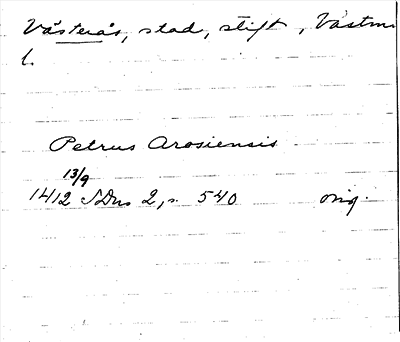 Västerås, stad, stift, Västm
l.
Petrus Arosiensis
13/9
1412 SDns 2, s. 540 orig.